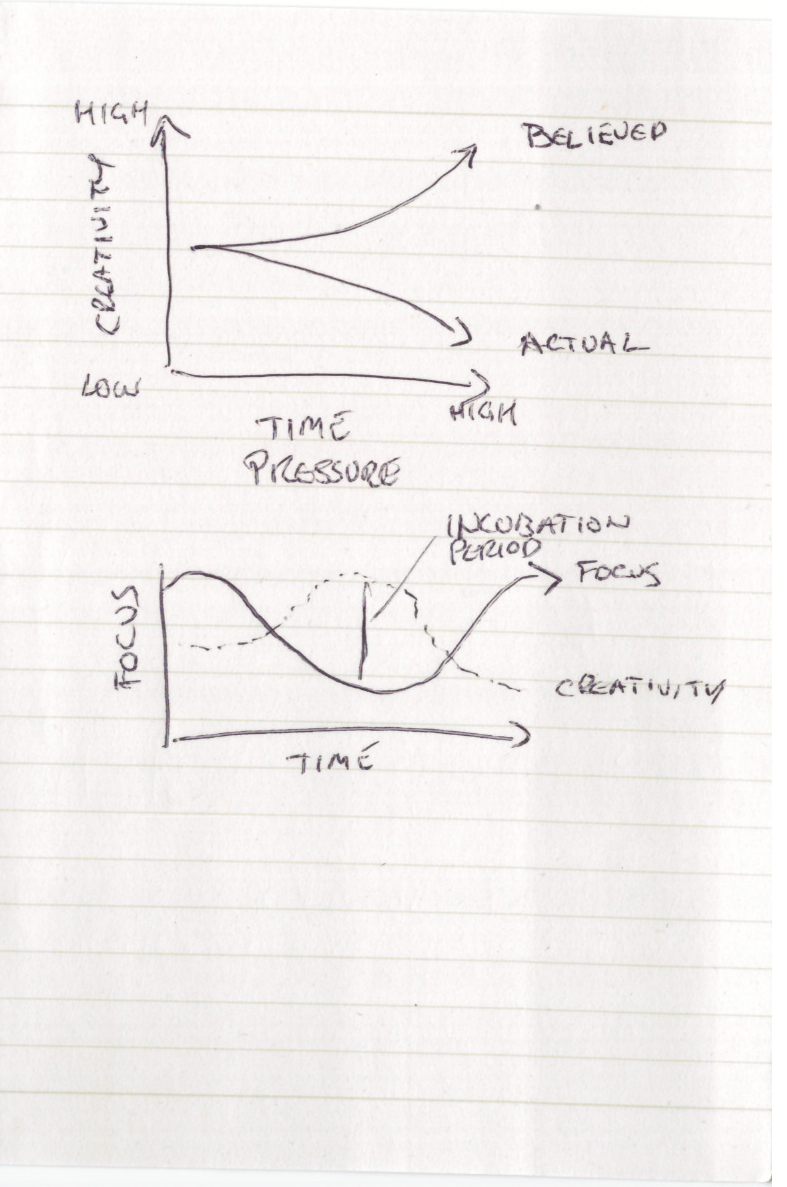 HIGH
CREATIVITY
BELIEVED
ACTUAL
LOW
HIGH
TIME
PRESSURE
INCUBATION
PERIOD
FOCUS
FOCUS
CREATIVITY
TIME